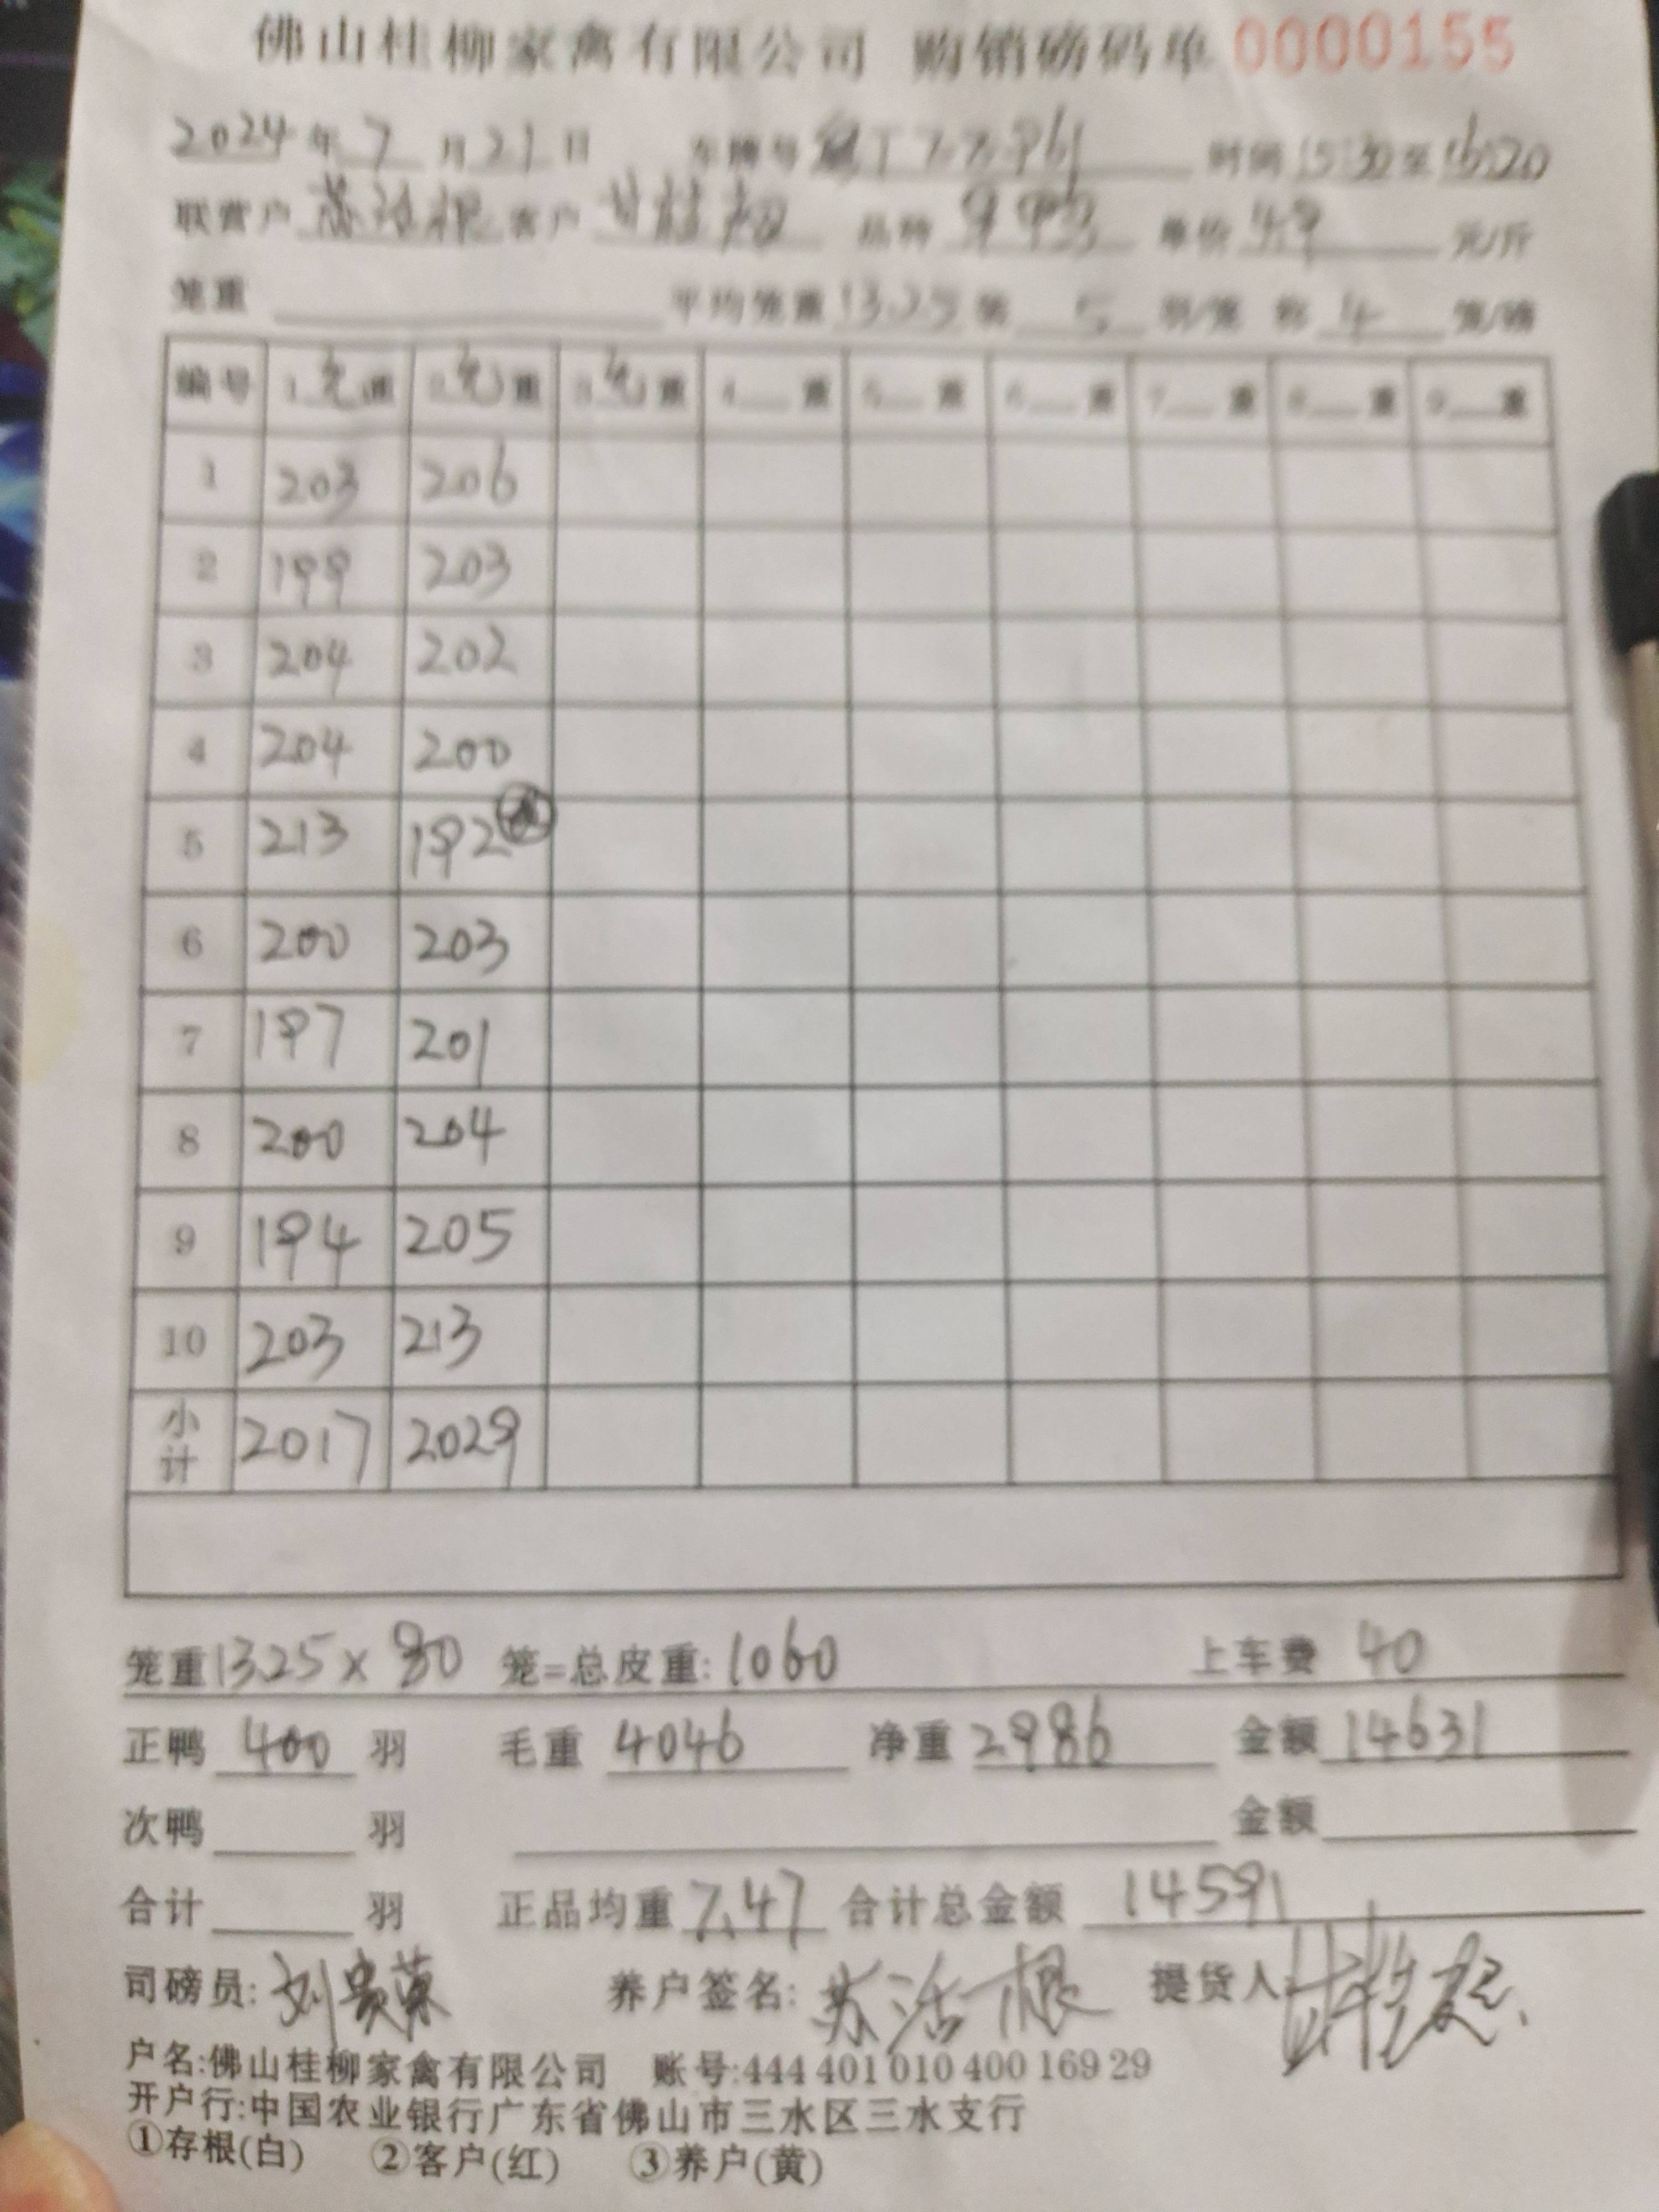 佛山桂柳家禽有限公司 购销磅码单 0000155
2024年 7 月 21 日 车牌号 时间 15:30 至 16:20
联营户 苏活根 客户 甘桂超 品种 单价 4.9 元/斤
笼重 平均笼重 13.25 装 5 羽/笼 称 4 笼/磅
编号 1 重 2 重 3 重 4 重 5 重 6 重 7 重 8 重 9 重
1 203 206
2 199 203
3 204 202
4 204 200
5 213 192
6 200 203
7 197 201
8 200 204
9 194 205
10 203 213
小计 2017 2029
笼重 13.25 x 80 笼=总皮重: 1060 上车费 40
正鸭 400 羽 毛重 4046 净重 2986 金额 14631
次鸭 羽 金额
合计 羽 正品均重 7.47 合计总金额 14591
司磅员: 刘 养户签名: 苏活根 提货人 甘桂超
户名:佛山桂柳家禽有限公司 账号:444 401 010 400 169 29
开户行:中国农业银行广东省佛山市三水区三水支行
①存根(白) ②客户(红) ③养户(黄)